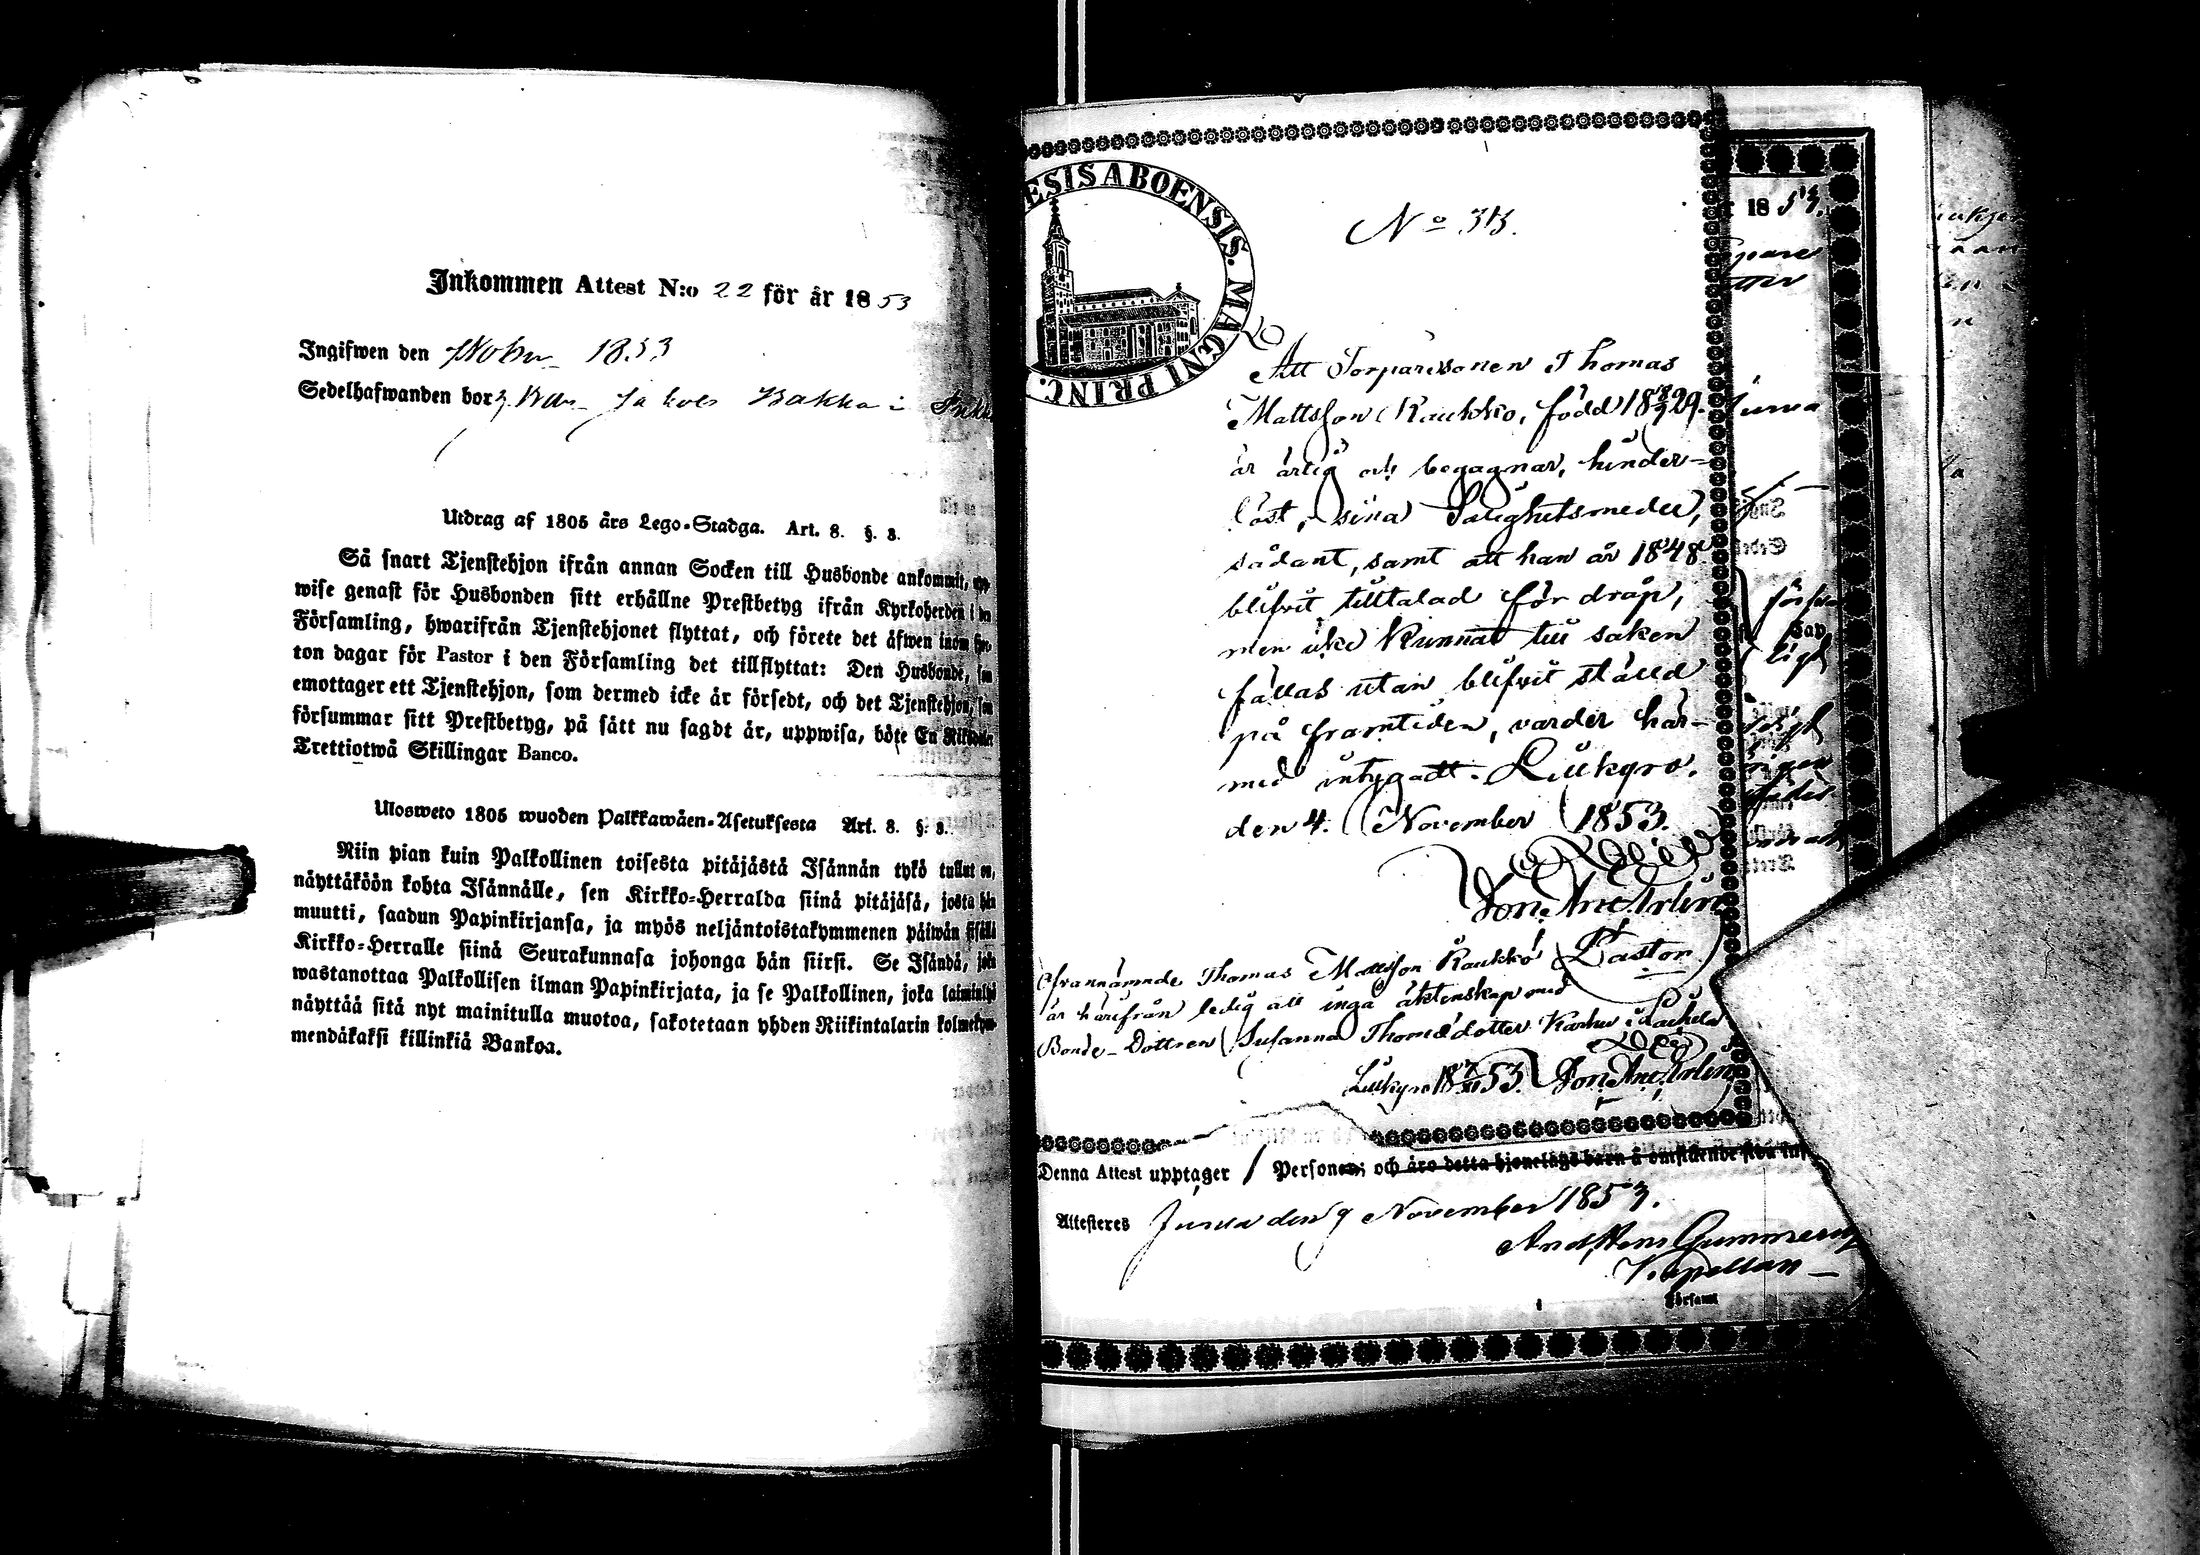 Inkommen Attest N:o 22 för år 1853
Ingifwen den Nobr 1853
Sedelhafwanden bor Bakka i
Utdrag af 1805 års Lego-Stadga. Art. 8. §. 3.
Så snart Tjenstehjon ifrån annan Socken till Husbonde ankommit, upp-
wise genast för Husbonden sitt erhållne Prestbetyg ifrån Kyrkoherden i den
Församling, hwarifrån Tjenstehjonet flyttat, och förete det äfwen inom
ton dagar för Pastor i den Församling det tillflyttat: Den Husbonde, som
emottager ett Tjenstehjon, som dermed icke är försedt, och det Tjenstehjon, som
försummar sitt Prestbetyg, på sätt nu sagdt är, uppwisa, böte En Riksdaler
Trettiotwå Skillingar Banco.
Ulosweto 1805 wuoden Palkkawäen-Asetuksesta Art. 8. §. 3.
Niin pian kuin Palkollinen toisesta pitäjästä Isännän tykö tullut on,
näyttäköön kohta Isännälle, sen Kirkko-Herralda siinä pitäjäsä, josta hän
muutti, saadun Papinkirjansa, ja myös neljäntoistakymmenen päiwän sisällä
Kirkko-Herralle siinä Seurakunnasa johonga hän siirsi. Se Isändä, joka
wastanottaa Palkollisen ilman Papinkirjata, ja se Palkollinen, joka laiminlyö
näyttää sitä nyt mainitulla muotoa, sakotetaan yhden Riikintalarin kolmekym-
mendäkaksi killinkiä Bankoa.
ESIS ABOENSIS. MAGNI PRINC.
No 313.
Att Torparesonen Thomas
Mattsson Raukko, född 18 8/9 29.
är ärlig och begagnar, hinder-
löst, sina Salighetsmedel,
sådant, samt att han år 1848
blifvit tilltalad för dråp,
men icke kunnat till saken
fällas utan blifvit ställd
på framtiden, varder här-
med intygadt. Lillkyro.
den 4. November 1853.
Jon. And. Arlin
Pastor.
Ofvannämnde Thomas Mattsson Raukko
är härifrån ledig att ingå äktenskap med
Bonde-Dottren Susanna Thomädotter Karhu i
Lillkyro 18 7/11 53. Jon. And. Arlin
1853.
Jurva
Denna Attest upptager 1 Personer; och äro detta hjonelags barn å omstående sida
Attesteres Jurva den 9 November 1853.
Kapellan
Församl